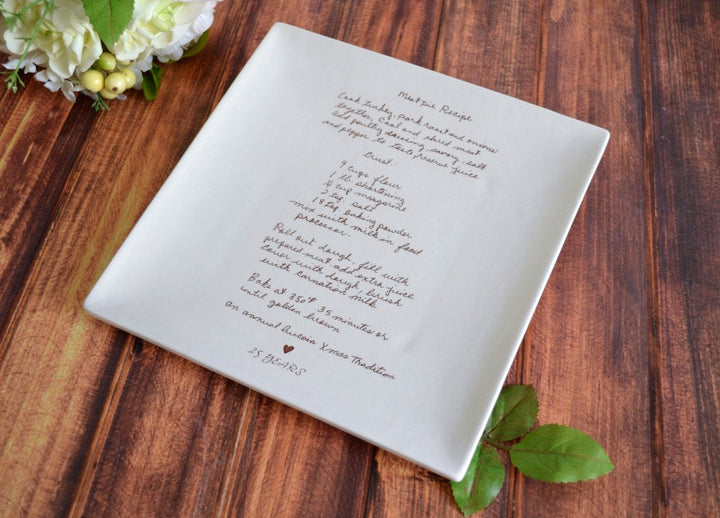 Meat pie Recipe
Cook turkey, pork roast and onions
together, Cool and shred meat
add poultry dressing, savory, salt
and pepper to taste, reserve juice
Crust:
9 Cups flour
1 lb shortening
1/4 cup margarine
3 tsp. salt
19 tsp baking powder
mix with milk in food
processor.
Roll out dough, fill with
prepared meat add extra juice
cover with dough brush
with carnation milk
Bake at 350°F 35 minutes or
until golden brown
an annual Aucoin Xmas Tradition
25 YEARS